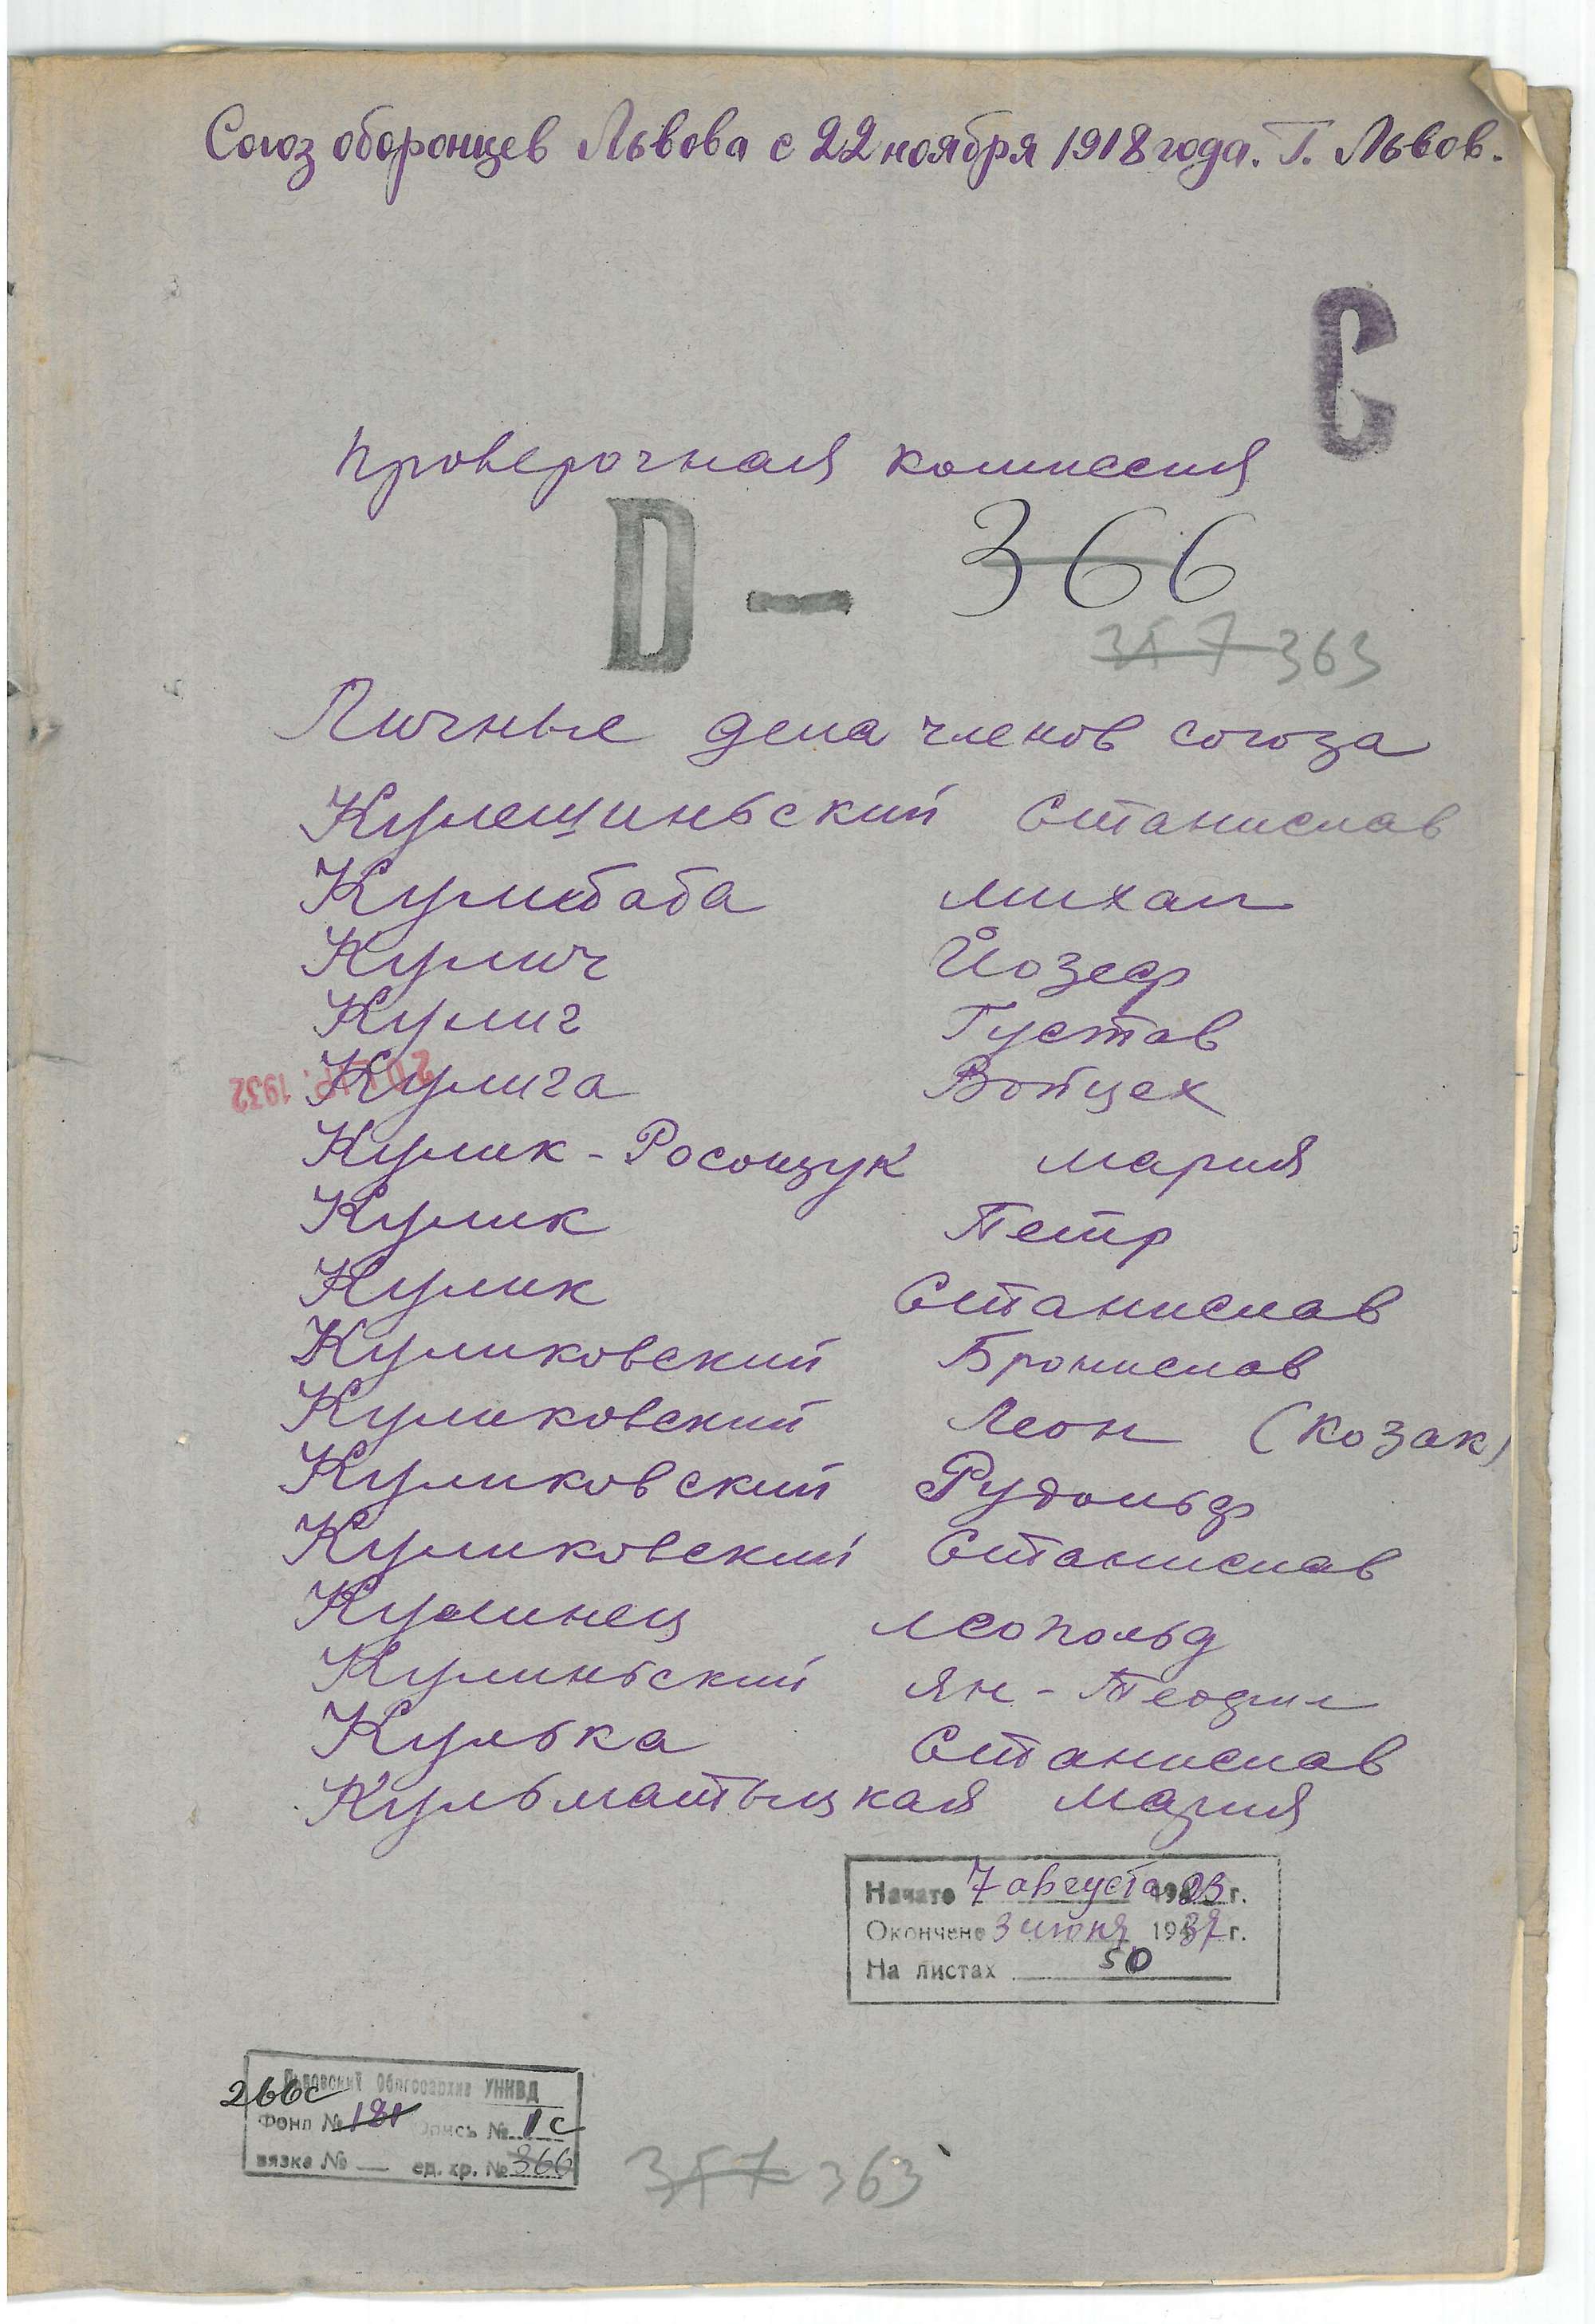 Союз оборонцев Львова с 22 ноября 1918 года. Г. Львов.
С
проверочная комиссия
D – 366
357 363
Личные дела членов союза
Кулещиньский Станислав
Кулибаба михал
Кулич Йозеф
Кулиг Густав
Кулига Войцех
1932
Кулик - Росощук мария
Кулик Петр
Кулик Станислав
Куликовский Бронислав
Куликовский Леон (козак)
Куликовский Рудольф
Куликовский Станислав
Кулинец леопольд
Кулиньский Ян - Теофил
Кулька Станислав
Кульматыцкая мария
Начато 7 августа 1923 г.
Окончено 3 июня 1937 г.
На листах 50
Львовский Облгосархив УНКВД
266с
Фонд № 181 Опись № 1с
вязка № — ед. хр. № 366
357 363